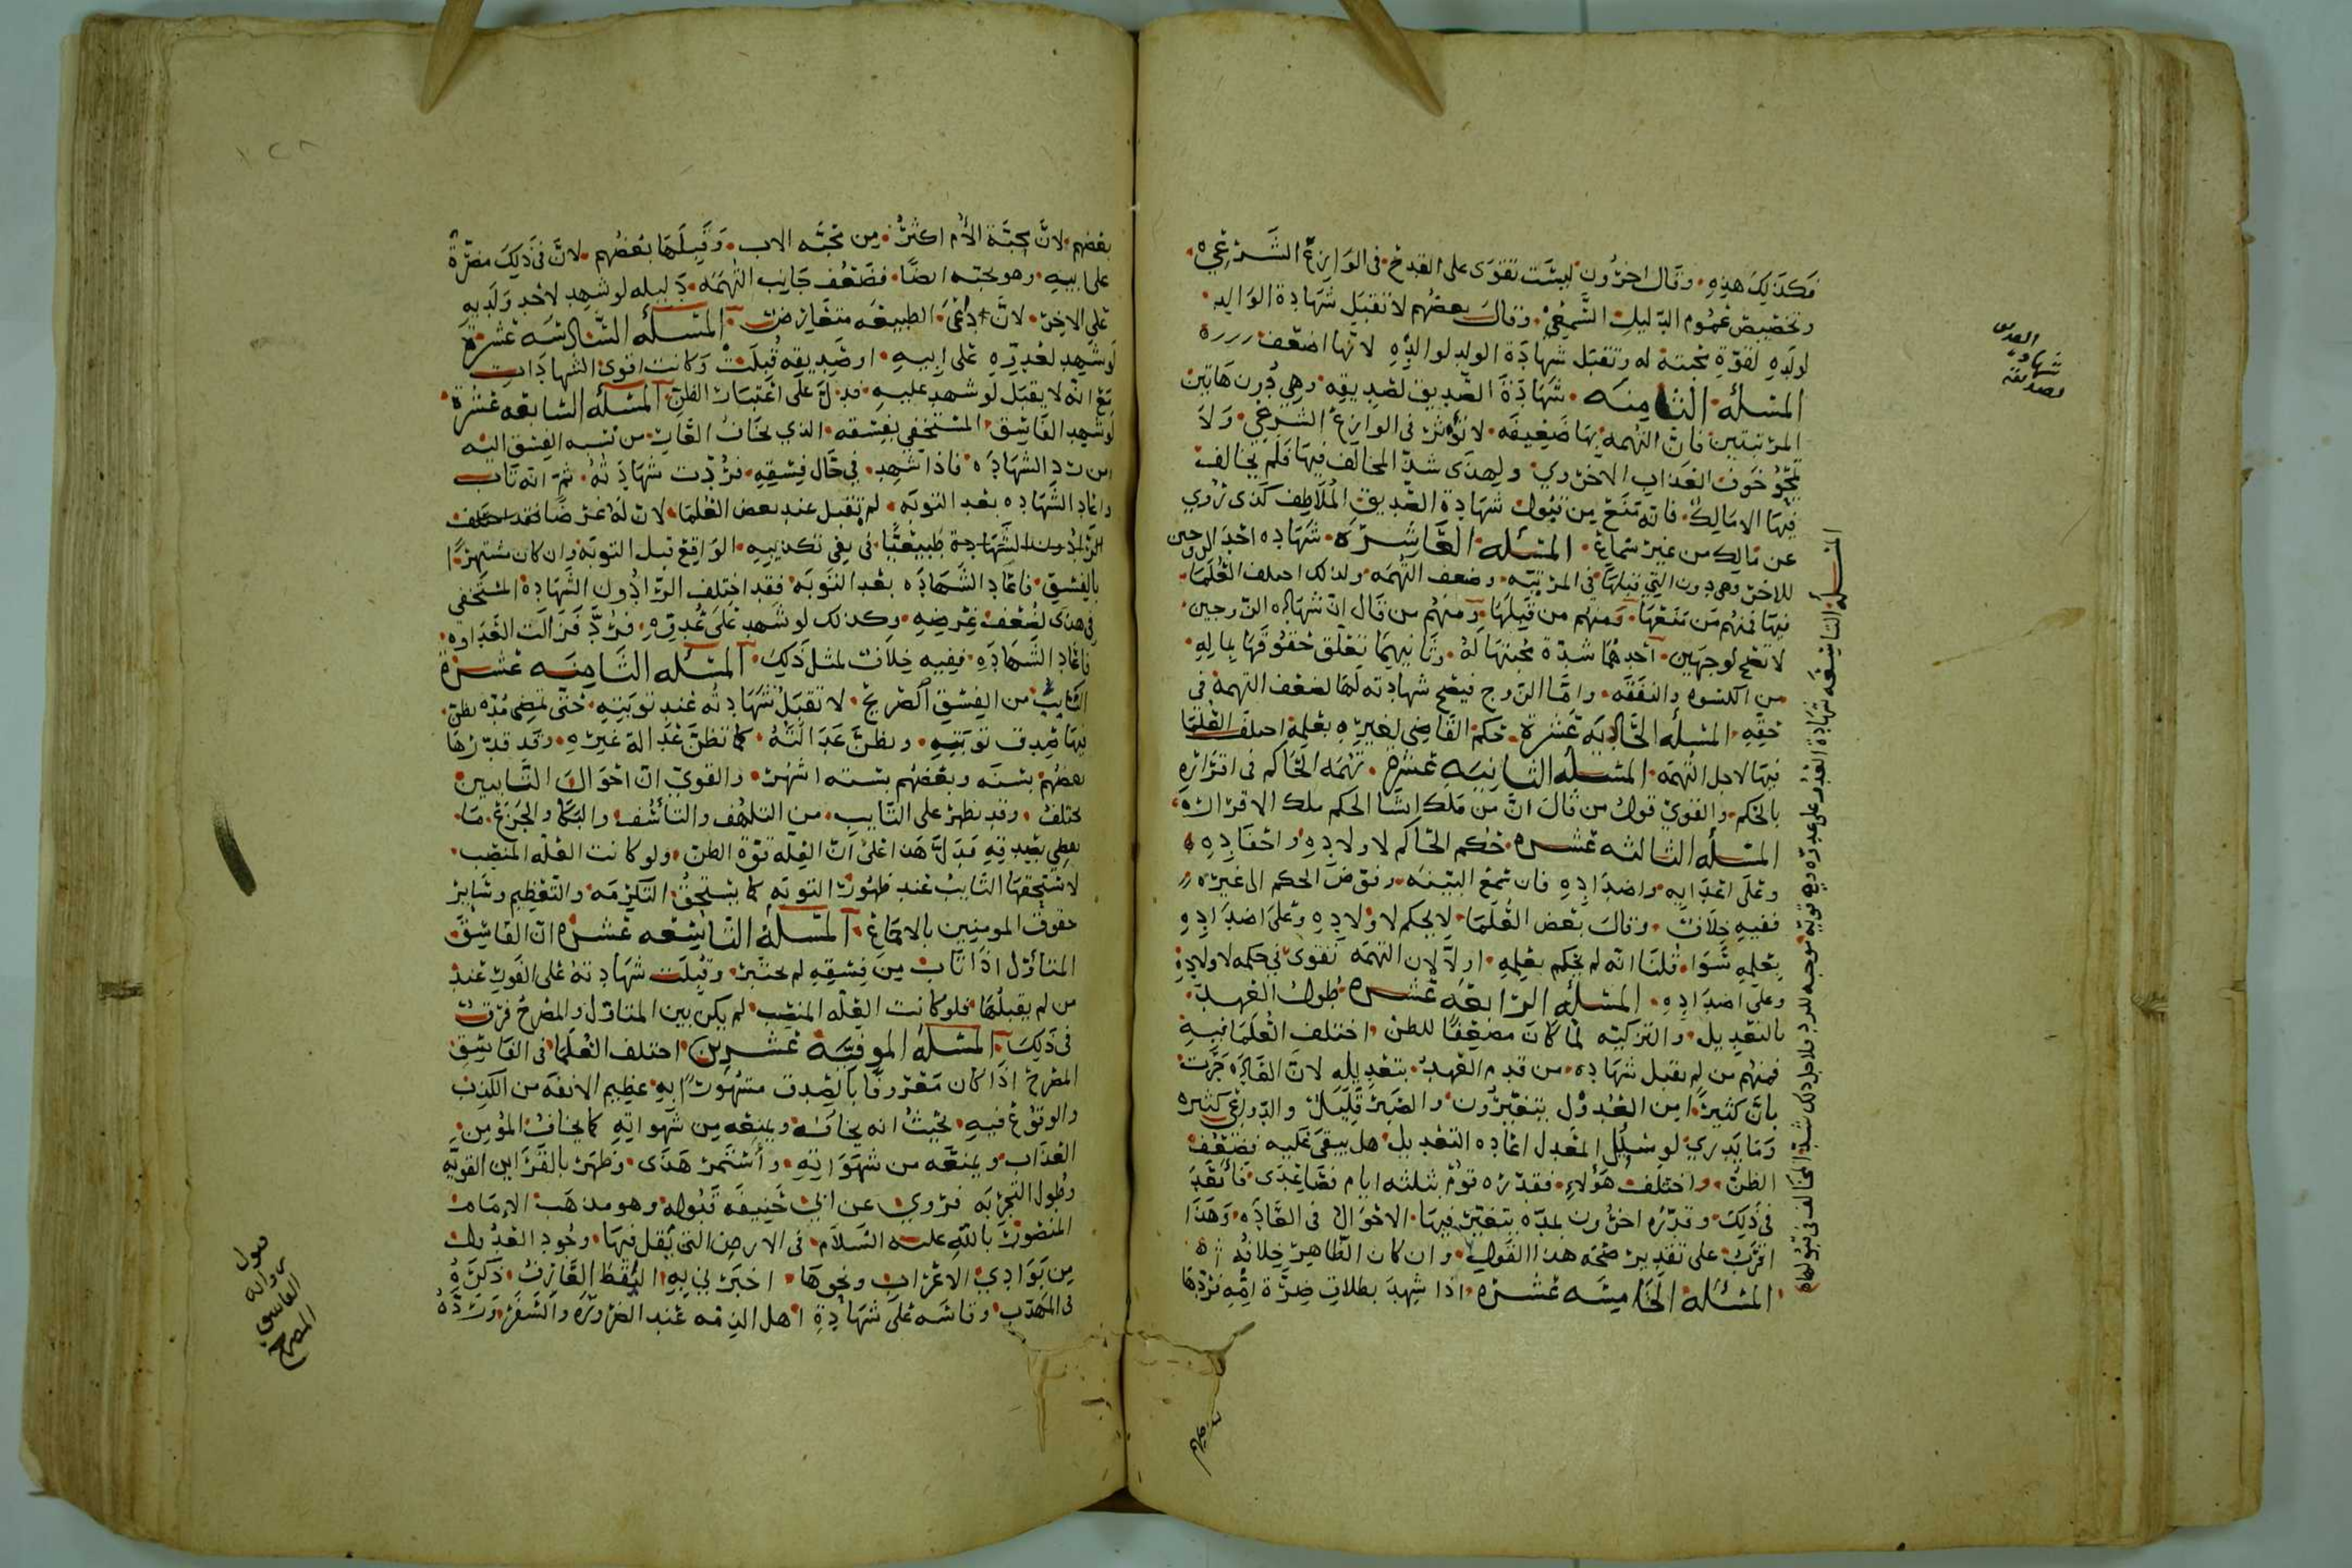 فكذلك هذه وقال اخرون ليست تقوى على القدح في الوازع الشرعي
وتخصيص عموم الدليل السمعي وقال بعضهم لا تقبل شهادة الوالد
لولده لقوة محبته له وتقبل شهادة الولد لوالده لانها اضعف
المسئله الثامنه شهادة الصديق لصديقه وهي دون هاتين
المرتبتين فان التهمه بها ضعيفه لا تؤثر في الوازع الشرعي ولا
تمحو خوف العذاب الاخروي ولهذى شذ المخالف فيها فلم يخالف
فيها الا مالك فانه منع من قبول شهادة الصديق الملاطف كذى روي
عن مالك من غير سماع المسئله العاشره شهاده احد الزوجين
للاخر وهي دون التي قبلها في المرتبه وضعف التهمه ولذلك اختلف العلما
فيها فمنهم من منعها ومنهم من قبلها ومنهم من قال ان شهاده الزوجين
لا تصح لوجهين احدهما شدة محبتها له وثانيهما تعلق حقوقها بماله
من الكسوه والنفقه واما الزوج فيصح شهادته لها لضعف التهمة في
حقه المسئله الحاديه عشرة حكم القاضي لغيره بعلمه اختلف العلما
فيها لاجل التهمه المسئله الثانيه عشره تهمه الحاكم في اقراره
بالحكم والقوي قول من قال ان من ملك انشا الحكم ملك الاقراربه
المسئله الثالثه عشره حكم الحاكم لاولاده واحفاده
وعلى اعدايه واضداده فان سمع البينه وفوض الحكم الى غيره
ففيه خلاف وقال بعض العلما لا يحكم لاولاده وعلى اضداده
بعلمه سوا قلنا انه لم يحكم بعلمه او لا لان التهمه تقوى في حكمه لاولاده
وعلى اضداده المسئله الرابعه عشره طول العهد
بالتعديل والتزكيه لما كان مضعفا للظن اختلف العلما فيه
فمنهم من لم يقبل شهاده من قدم العهد بتعديله لان العاده جرت
بان كثيرا من العدول يتغيرون والصبر قليل والدواعي كثيره
وما يدري لو سئل المعدل اعاده التعديل هل يبقى عليه فضعف
الظن واختلف هؤلاء فقدره قوم بثلثه ايام فصاعدى فانعقد
في ذلك وقدره اخرون بمده يتغير فيها الاحوال في العاده وهذا
اقرب على تقدير صحه هذا القول وان كان الظاهر خلافه
المسئله الخامسه عشره اذا شهد بطلاق ضرة امه فردها
المسئله التاسعه شهادة العدو على عدوه وهي قويه موجبه للرد فلاجل ذلك شذ المخالف في قبولها
العدو
شهادة
لصديقه
بعضهم
بعضهم لان محبة الأم اكثر من محبه الاب وقبلها بعضهم لان في ذلك مضرة
على ابيه وهو يحبه ايضا فضعف جانب التهمه دليله لو شهد لاحد ولديه
على الاخر لان داعي الطبيعه متعارض المسئله السادسه عشرة
لو شهد لعدوه على ابيه او صديقه قبلت وكانت اقوى الشهادات
مع انه لا يقبل لو شهد عليه فدل على اعتبار الظن المسئله السابعه عشرة
لو شهد الفاسق المستخفي بفسقه الذي يخاف العار من نسبه الفسق اليه
من رد الشهاده فاذا شهد في حال فسقه فردت شهادته ثم انه تاب
واعاد الشهاده بعد التوبه لم تقبل عند بعض العلما لان له غرضا
الشهادة طبيعتا في نفي تكذيبه الواقع قبل التوبه وان كان مشتهرا
بالفسق فاعاد الشهاده بعد التوبه فقد اختلف الرادون الشهادة المستخفي
في هذى لضعف غرضه وكذلك لو شهد على عدوه فرد فزالت العداوه
فاعاد الشهاده ففيه خلاف لمثل ذلك المسئله الثامنه عشرة
التايب من الفسق الصريح لا تقبل شهادته عند توبته حتى تمضي مده يظن
فيها صدق توبته ويظن عدالته كما تظن عدالة غيره وقد قدرها
بعضهم بسنه وبعضهم بسته اشهر والقوي ان احوال التايبين
تختلف وقد يظهر على التايب من التلهف والتأسف والبكا والجزع ما
يعطي بصدقه فدل هذا على ان العله قوة الظن ولو كانت العله المنصب
لاستحقها التايب عند ظهور التوبه كما يستحق التكرمه والتعظيم وساير
حقوق المومنين بالاجماع المسئله التاسعه عشره ان الفاسق
المتأول اذا تاب من فسقه لم يختبر وقبلت شهادته على الفور عند
من لم يقبلها فلو كانت العله المنصب لم يكن بين المتاول والمصرح فرق
في ذلك المسئله الموفيه عشرين اختلف العلما في الفاسق
المصرح اذا كان معروفا بالصدق مشهورا به عظيم الانفه من الكذب
والوقوع فيه بحيث انه يخافه ويمنعه من شهواته كما يخاف المؤمن
العذاب ويمنعه من شهواته واستمر هذى وظهر بالقراين القويه
وطول التجربه فروي عن ابي حنيفه قبوله وهو مذهب الامام
المنصور بالله عليه السلام في الارض التي يقل فيها وجود العدول
من بوادي الاعراب ونحوها اخبرني به اليقظ العارف ذكره
في المهذب وقاسه على شهادة اهل الذمه عند الضروره والسفر ورده
قبول
رواية
الفاسق
المصرح